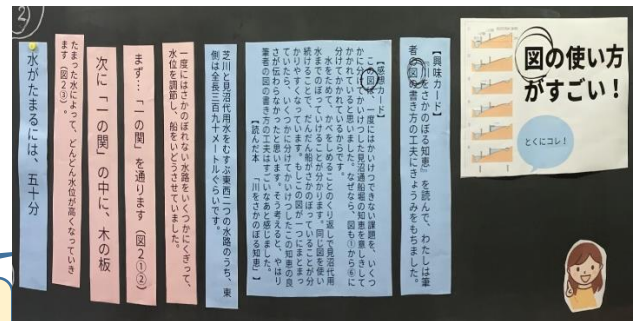 ②
図の使い方
がすごい！
とくにコレ！
【興味カード】
『川をさかのぼる知恵』を読んで、わたしは筆
者の図の書き方の工夫にきょうみをもちました。
【感想カード】
この図は、一度にはかいけつできない課題を、いくつ
かに分けてかいけつした見沼通船堀の知恵を意しきして
かかれていると思いました。なぜなら、図も①から⑥に
分けてかかれているからです。
水をためて、かべをしめることのくり返しで見沼代用
水までのぼっていけることが分かります。同じ図を使い
続けることで、だんだん船がさかのぼっていることが分
かりやすくなっています。もしこの図が一つにまとまっ
ていたら、いくつかに分けてかいけつしたこの知恵の良
さが伝わらなかったと思います。そう考えると、やはり
筆者の図の書き方の工夫はすごいなあと感じました。
【読んだ本　「川をさかのぼる知恵」】
芝川と見沼代用水をむすぶ東西二つの水路のうち、東
側は全長三百九十メートルぐらいです。
一度にはさかのぼれない水路をいくつかにくぎって、
水位を調節し、船をいどうさせていました。
まず…「一の関」を通ります（図２①②）
次に「一の関」の中に、木の板
たまった水によって、どんどん水位が高くなっていき
ます（図２③）。
水がたまるには、五十分